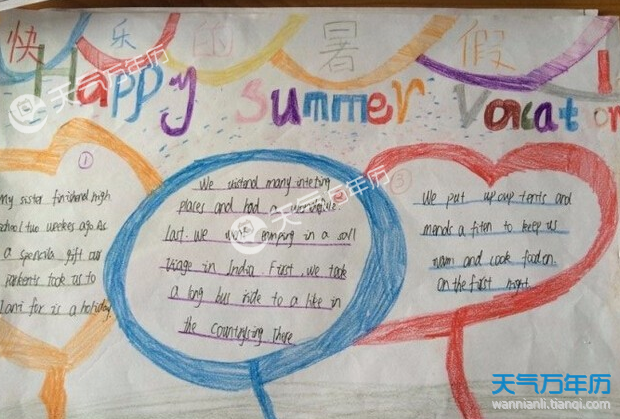 快乐的暑假
Happy Summer Vacation
①
My sister finishend high
school two weekes ago. As
a spencila gift our
parkents took us to
for is a holiday
We visitand many inteting
places and had a
last. We in a
Viage in India. First, we took
a long bus ride to a like in
the countrysing There
We put up oup tents and
a to keep us
warm and cook food on
on the first night
天气万年历
天气万年历
天气万年历
天气万年历
wannianli.tianqi.com